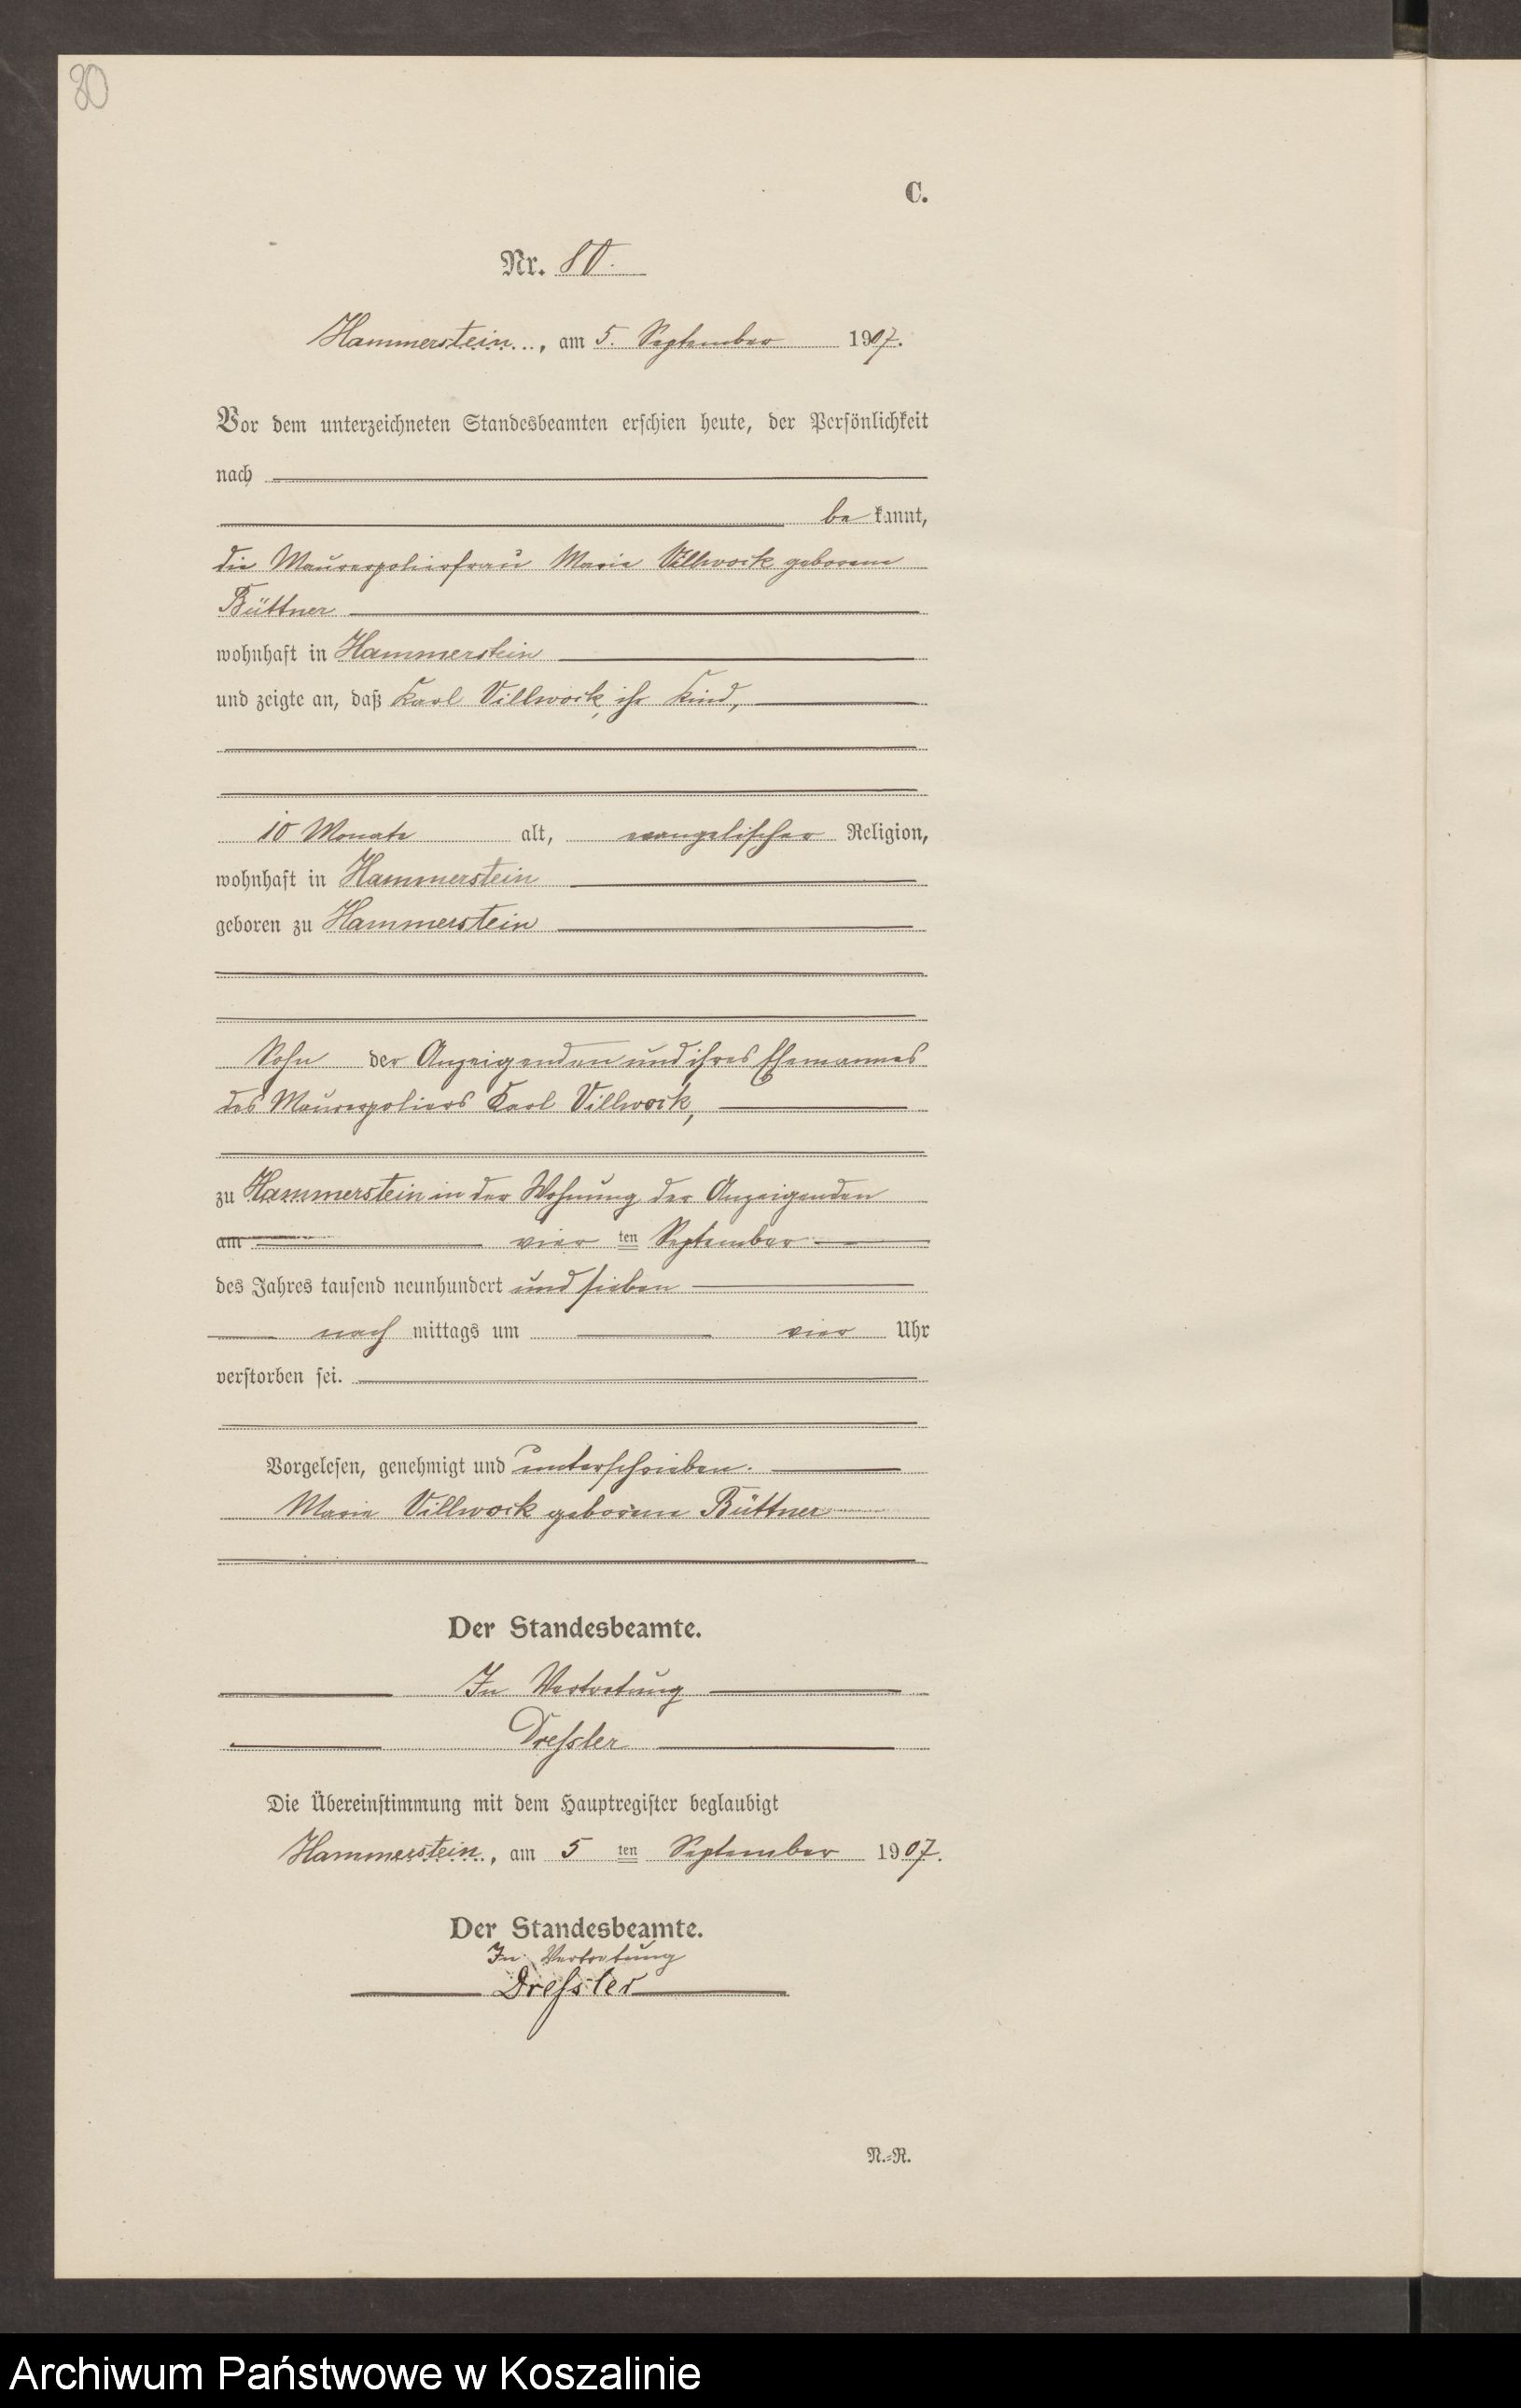 80
C.
Nr. 80.
Hammerstein, am 5. September 1907.
Vor dem unterzeichneten Standesbeamten erschien heute, der Persönlichkeit
nach
be kannt,
die Maurerpolierfrau Marie Villwock geborene
Büttner
wohnhaft in Hammerstein
und zeigte an, daß Karl Villwock, ihr Kind,
10 Monate alt, evangelischer Religion,
wohnhaft in Hammerstein
geboren zu Hammerstein
Sohn der Anzeigenden und ihres Ehemannes
des Maurerpoliers Karl Villwock,
zu Hammerstein in der Wohnung der Anzeigenden
am vier ten September
des Jahres tausend neunhundert und sieben
nach mittags um vier Uhr
verstorben sei.
Vorgelesen, genehmigt und unterschrieben.
Marie Villwock geborene Büttner
Der Standesbeamte.
In Vertretung
Dressler
Die Übereinstimmung mit dem Hauptregister beglaubigt
Hammerstein, am 5 ten September 1907.
Der Standesbeamte.
In Vertretung
Dressler
N.-R.
Archiwum Państwowe w Koszalinie